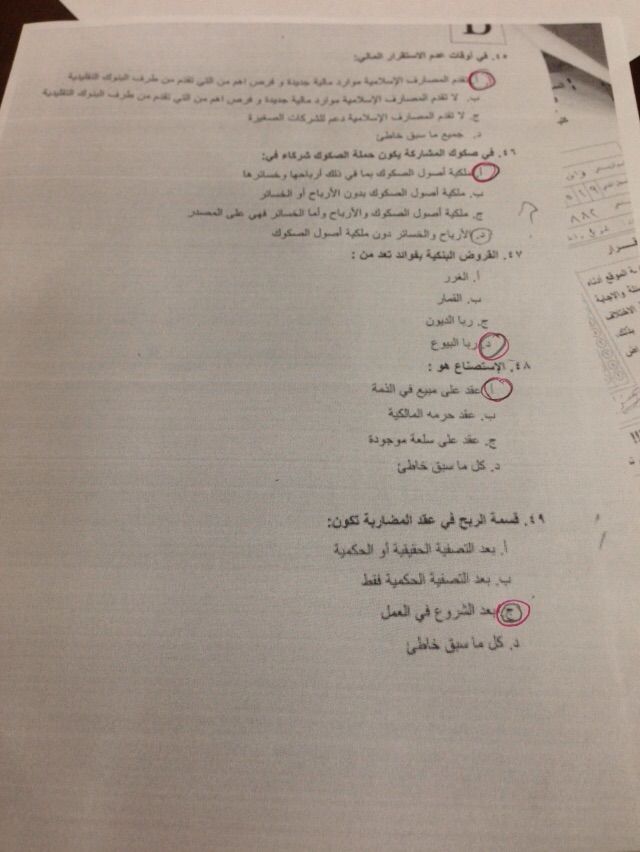 ٤٥. في أوقات عدم الاستقرار المالي:
أ. تقدم المصارف الإسلامية موارد مالية جديدة و فرص اهم من التي تقدم من طرف البنوك التقليدية
ب. لا تقدم المصارف الإسلامية موارد مالية جديدة و فرص اهم من التي تقدم من طرف البنوك التقليدية
ج. لا تقدم المصارف الإسلامية دعم للشركات الصغيرة
د. جميع ما سبق خاطئ
٤٦. في صكوك المشاركة يكون حملة الصكوك شركاء في:
أ. ملكية أصول الصكوك بما في ذلك أرباحها وخسائرها
ب. ملكية أصول الصكوك بدون الأرباح أو الخسائر
ج. ملكية أصول الصكوك والأرباح وأما الخسائر فهي على المصدر
د. الأرباح والخسائر دون ملكية أصول الصكوك
٤٧. القروض البنكية بفوائد تعد من :
أ. الغرر
ب. القمار
ج. ربا الديون
د. ربا البيوع
٤٨. الإستصناع هو :
أ. عقد على مبيع في الذمة
ب. عقد حرمه المالكية
ج. عقد على سلعة موجودة
د. كل ما سبق خاطئ
٤٩. قسمة الربح في عقد المضاربة تكون:
أ. بعد التصفية الحقيقية أو الحكمية
ب. بعد التصفية الحكمية فقط
ج. بعد الشروع في العمل
د. كل ما سبق خاطئ
٨٨٢
قرار
الموقع أدناه
والإجابة
الاختلاف
بذلك